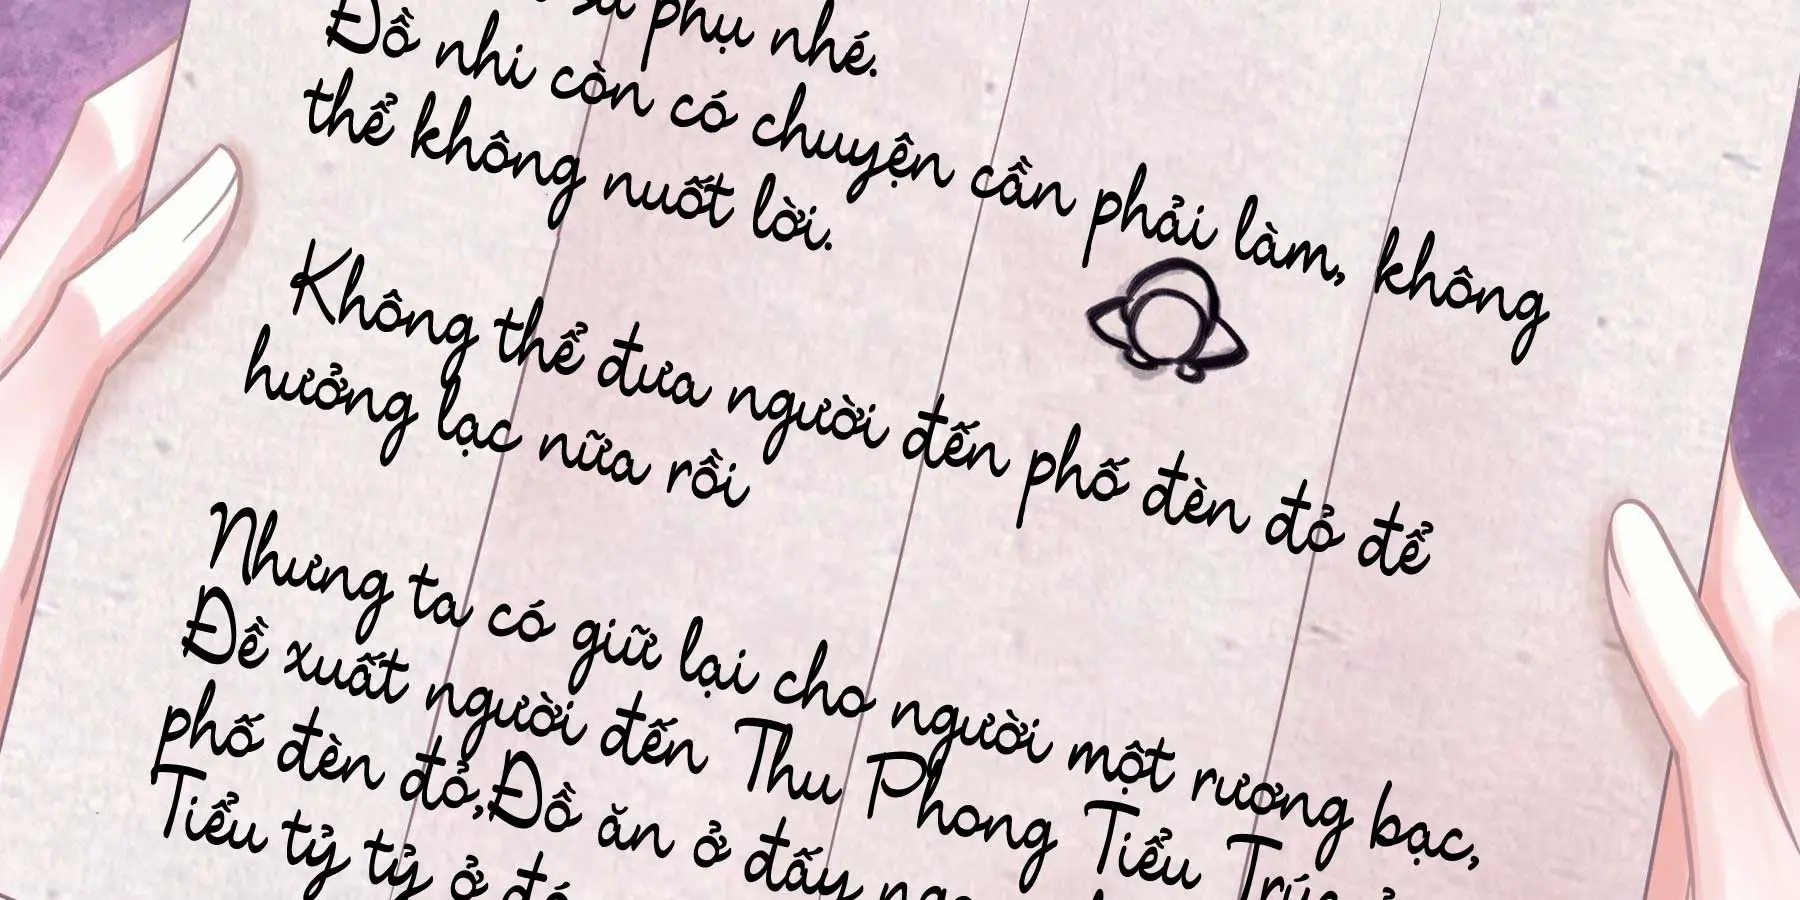 phụ nhé.
Đồ nhi còn có chuyện cần phải làm, không
thể không nuốt lời.
Không thể đưa người đến phố đèn đỏ để
hưởng lạc nữa rồi
Nhưng ta có giữ lại cho người một rương bạc,
Đề xuất người đến Thu Phong Tiểu Trúc ở
phố đèn đỏ,Đồ ăn ở đấy
Tiểu tỷ tỷ ở đó